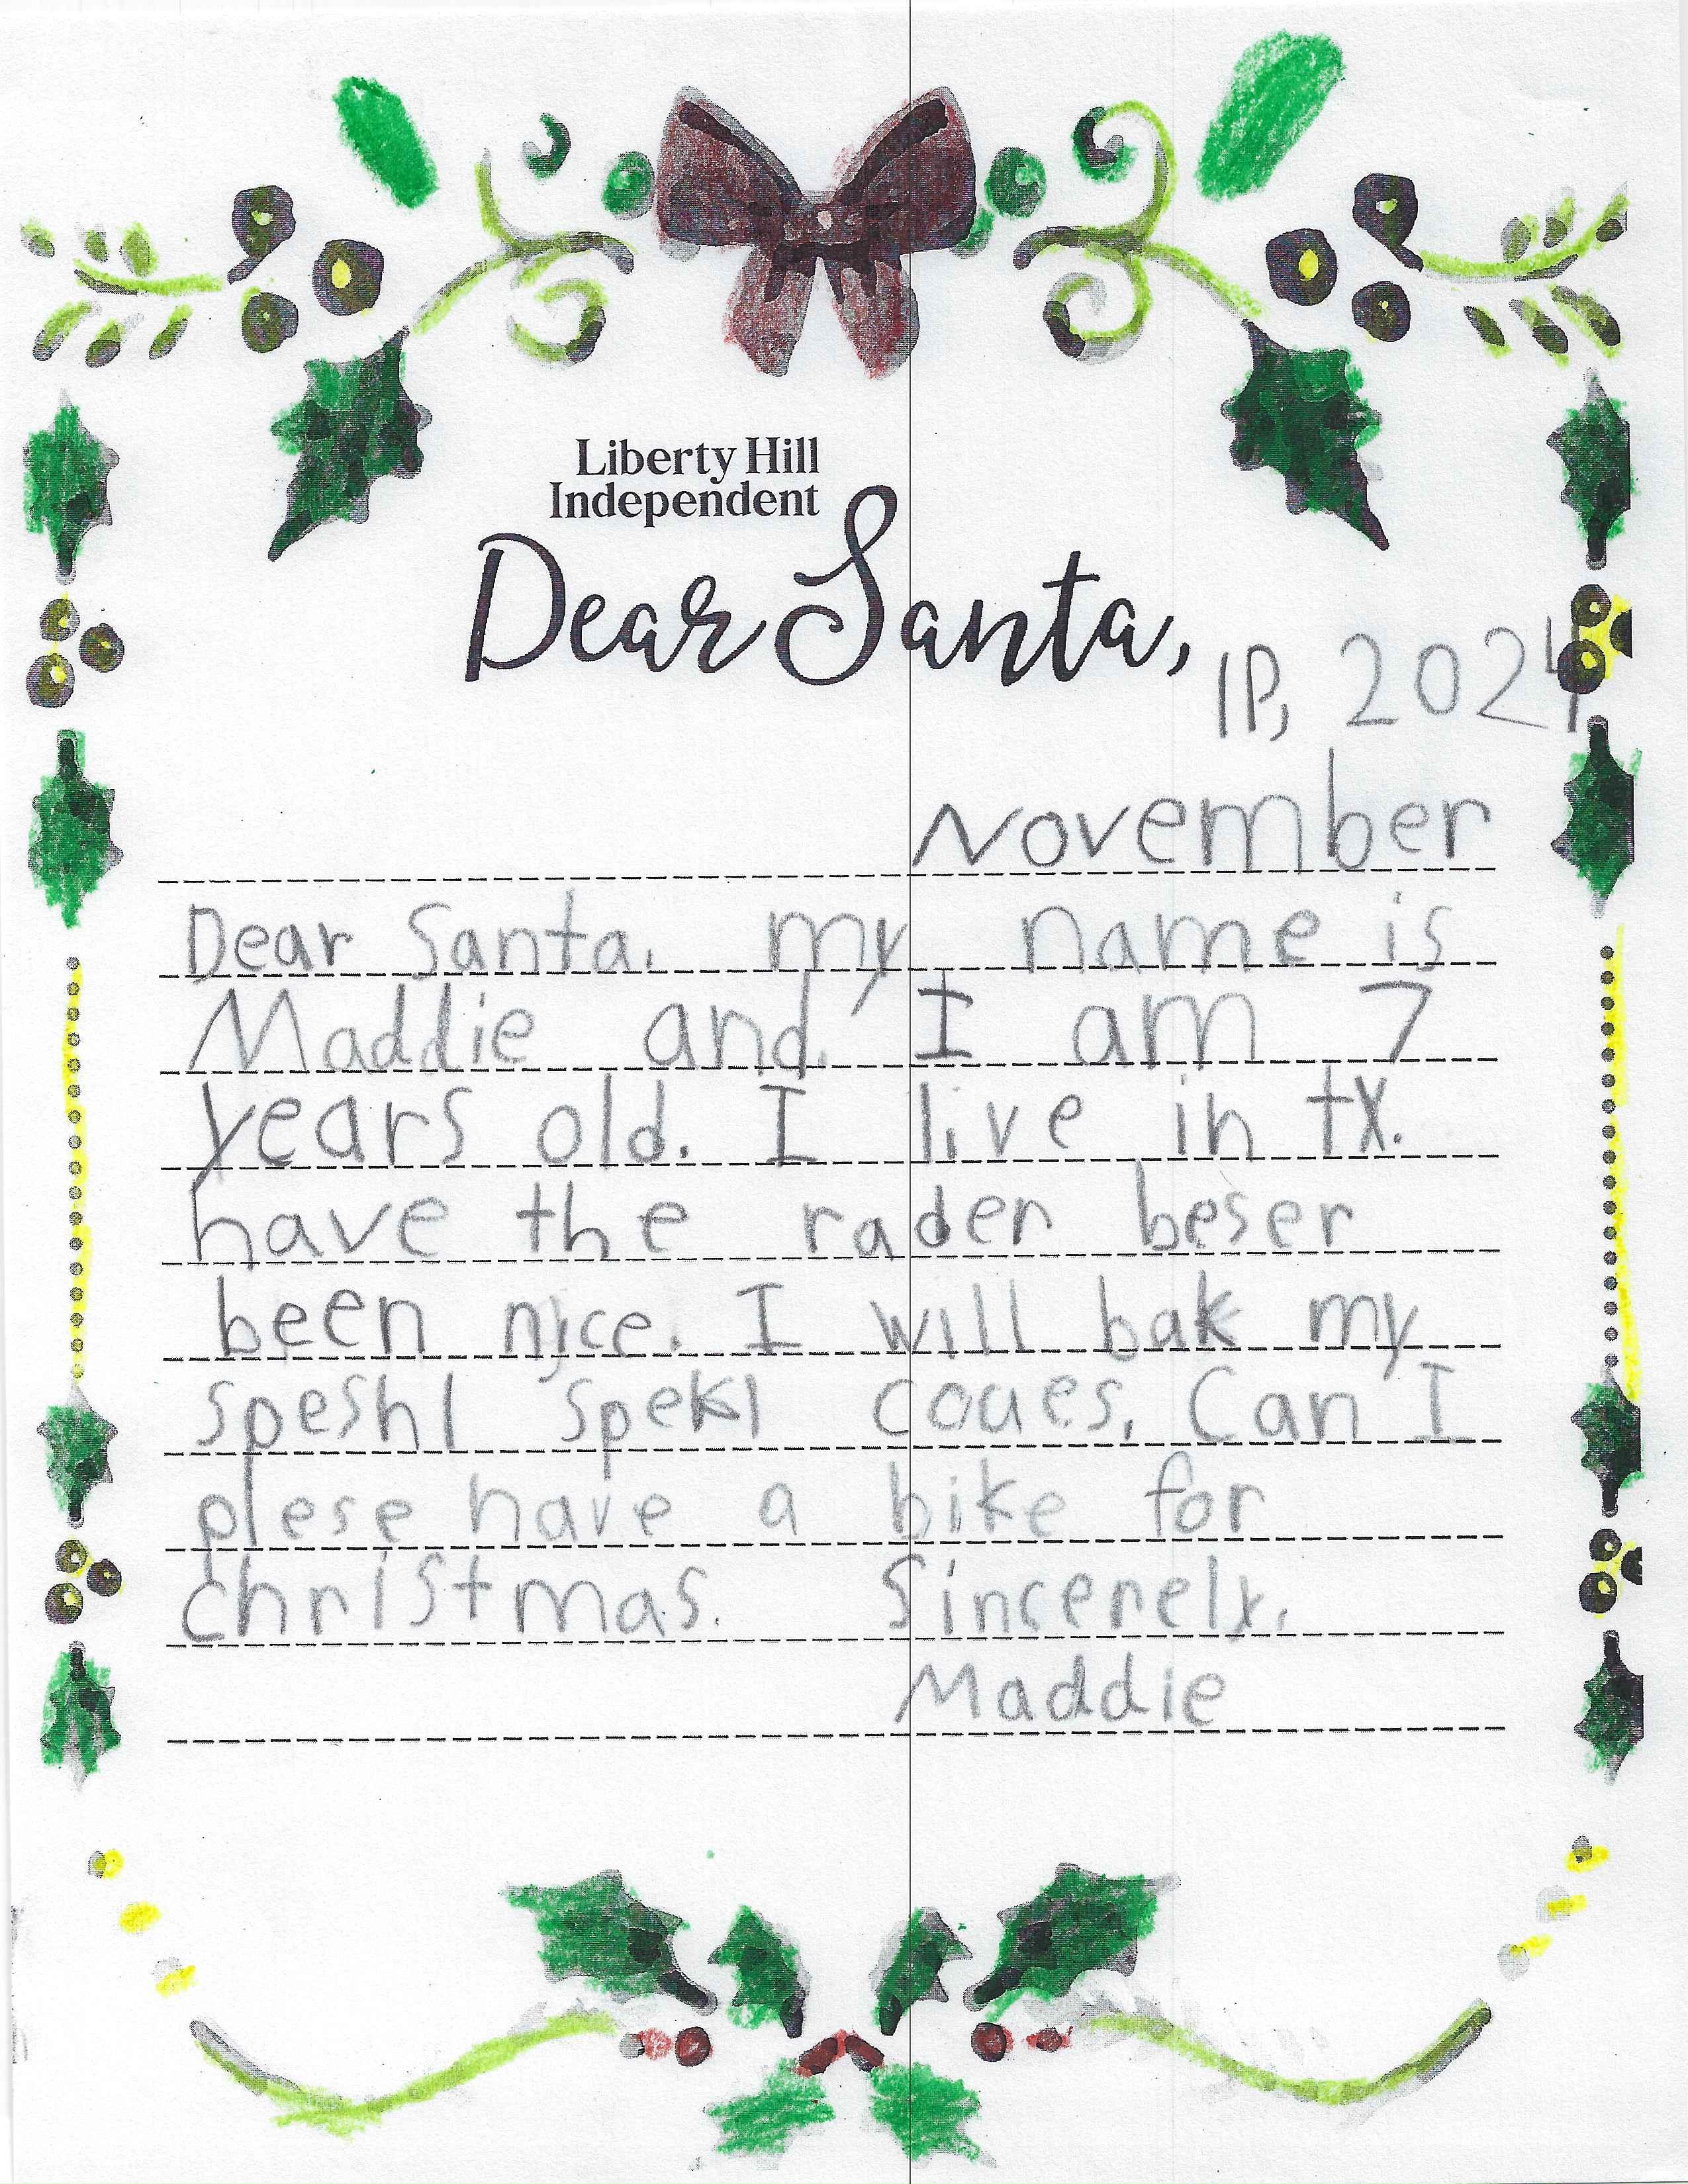 Liberty Hill
Independent
Dear Santa,
1P, 2024
November
Dear Santa, my name is
Maddie and I am 7
years old. I live in tx.
have the rader beser
been nice. I will bak my
speshl spekl coues. Can I
plese have a bike for
christmas. Sincerely,
Maddie